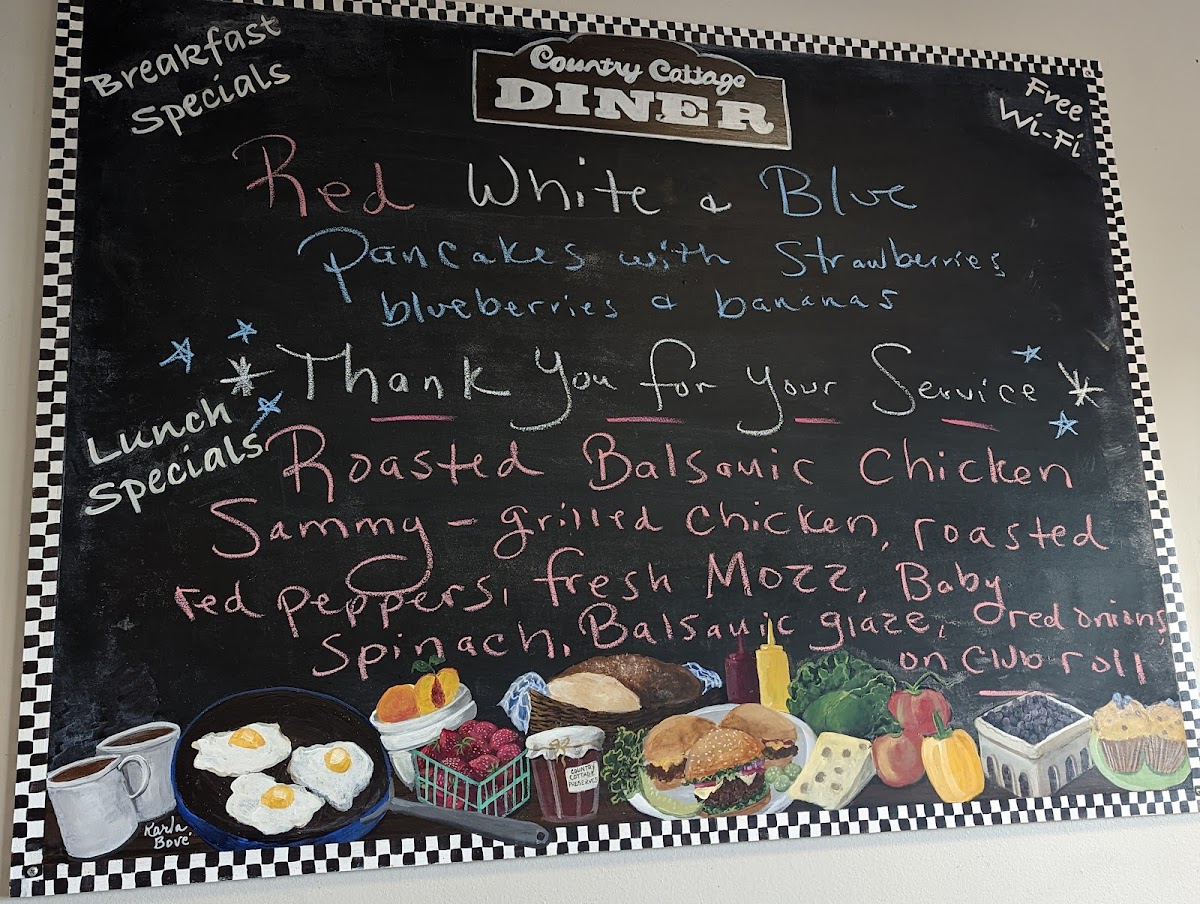 Breakfast
Specials
Country Cottage
DINER
Free
Wi-Fi
Red White & Blue
Pancakes with Strawberries
blueberries & bananas
Thank You for Your Service
Lunch
Specials
Roasted Balsamic Chicken
Sammy - grilled chicken, roasted
red peppers, fresh Mozz, Baby
Spinach, Balsamic glaze, red onions
on Club roll
COUNTRY
COTTAGE
PRESERVES
Karla
Bove'